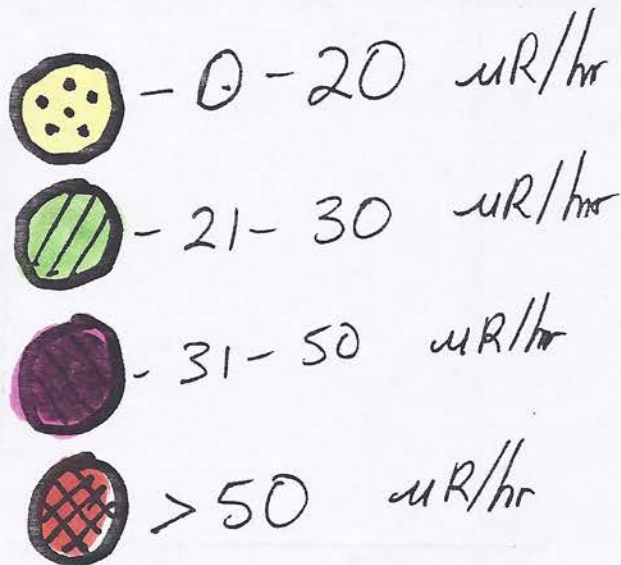 - 0 - 20 uR/hr
- 21 - 30 uR/hr
- 31 - 50 uR/hr
> 50 uR/hr